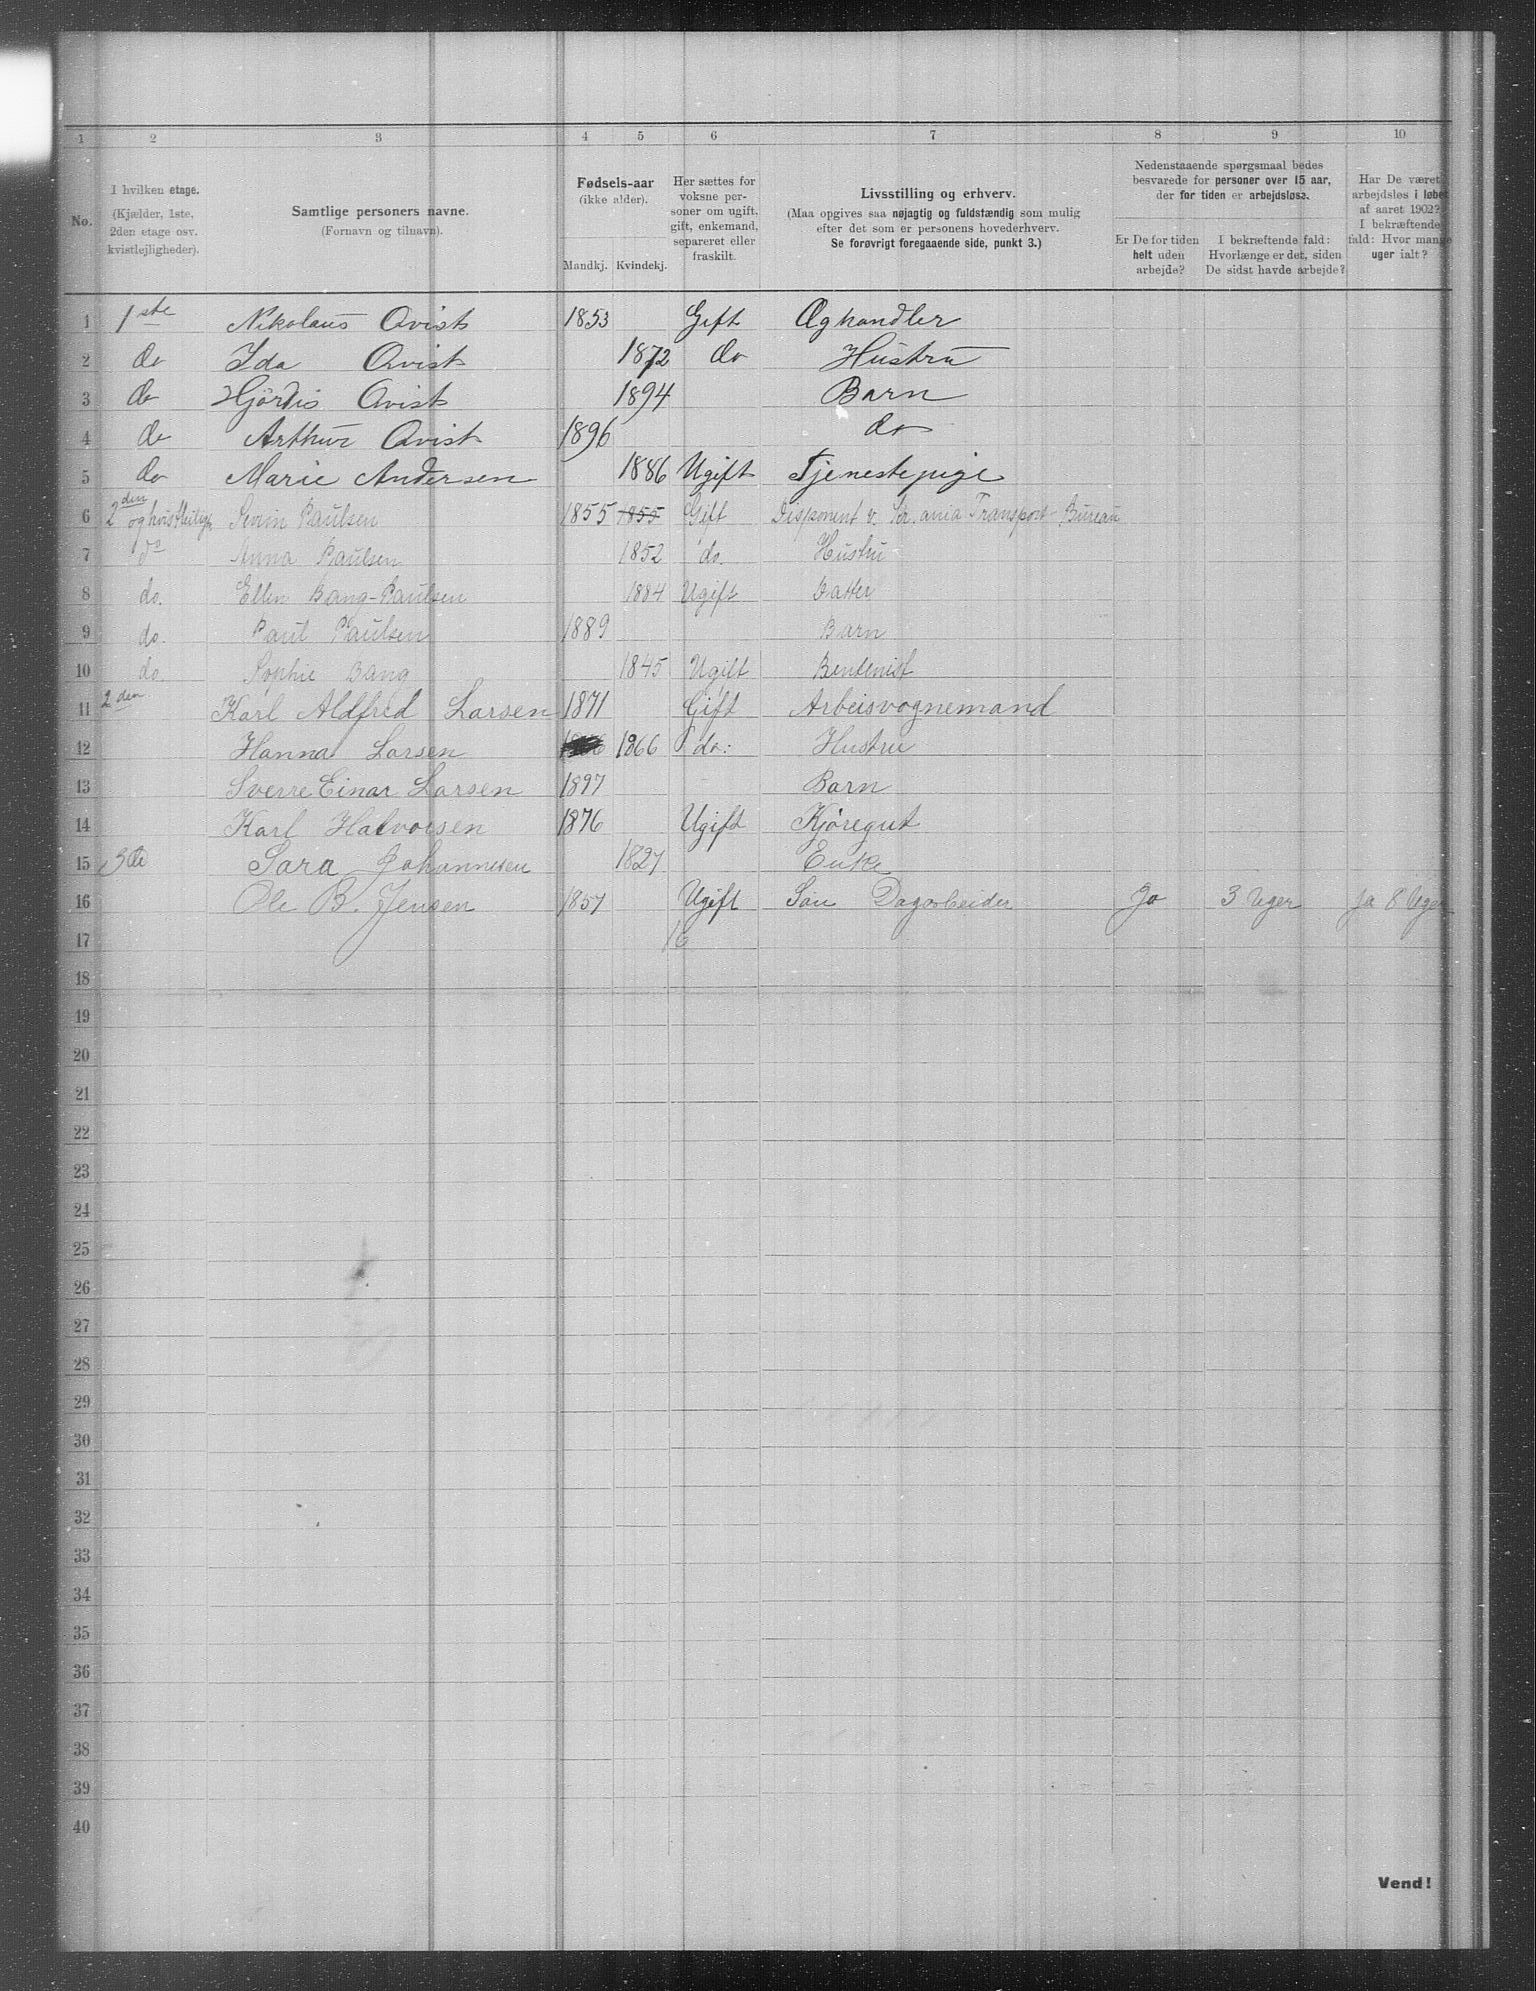 1 2 3 4 5 6 7 8 9 10
No. I hvilken etage. (Kjælder, 1ste, 2den etage osv. kvistlejligheder).
Samtlige personers navne. (Fornavn og tilnavn).
Fødsels-aar (ikke alder). Mandkj. Kvindekj.
Her sættes for voksne personer om ugift, gift, enkemand, separeret eller fraskilt.
Livsstilling og erhverv. (Maa opgives saa nøjagtig og fuldstændig som mulig efter det som er personens hovederhverv. Se forøvrigt foregaaende side, punkt 3.)
Nedenstaaende spørgsmaal bedes besvarede for personer over 15 aar, der for tiden er arbejdsløse.
Er De for tiden helt uden arbejde?
I bekræftende fald: Hvorlænge er det, siden De sidst havde arbejde?
Har De været arbejdsløs i løbet af aaret 1902? I bekræftende fald: Hvor mange uger ialt?
1 1ste Nikolaus Qvist 1853 Gift Æghandler
2 do Ida Qvist 1872 do Hustru
3 do Hjördis Qvist 1894 Barn
4 do Arthur Qvist 1896 do
5 do Marie Andersen 1886 Ugift Tjenestepige
6 2den og Severin Paulsen 1855 1855 Gift Disponent v. Kr.ania Transport-Bureau
7 do Anna Paulsen 1852 do. Hustru
8 do. Ellen Bang-Paulsen 1884 Ugift Datter
9 do. Paul Paulsen 1889 Barn
10 do. Sophie Bang 1845 Ugift Rentenist
11 2den Karl Aldfred Larsen 1871 Gift Arbeisvognemand
12 Hanna Larsen 1866 do: Hustru
13 Sverre Einar Larsen 1897 Barn
14 Karl Halvorsen 1876 Ugift Kjøregut
15 3die Sara Johannesen 1827 Enke
16 Ole B. Jensen 1857 Ugift Søn Dagarbeider Ja 3 Uger Ja 8 Uger
17 16
18
19
20
21
22
23
24
25
26
27
28
29
30
31
32
33
34
35
36
37
38
39
40
Vend!